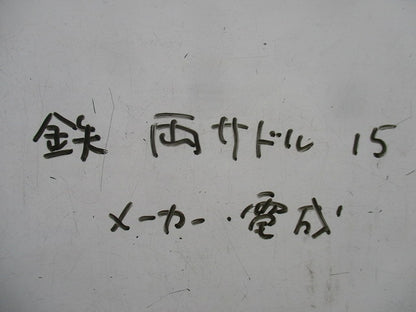 鉄 両サドル 15
メーカー・電成